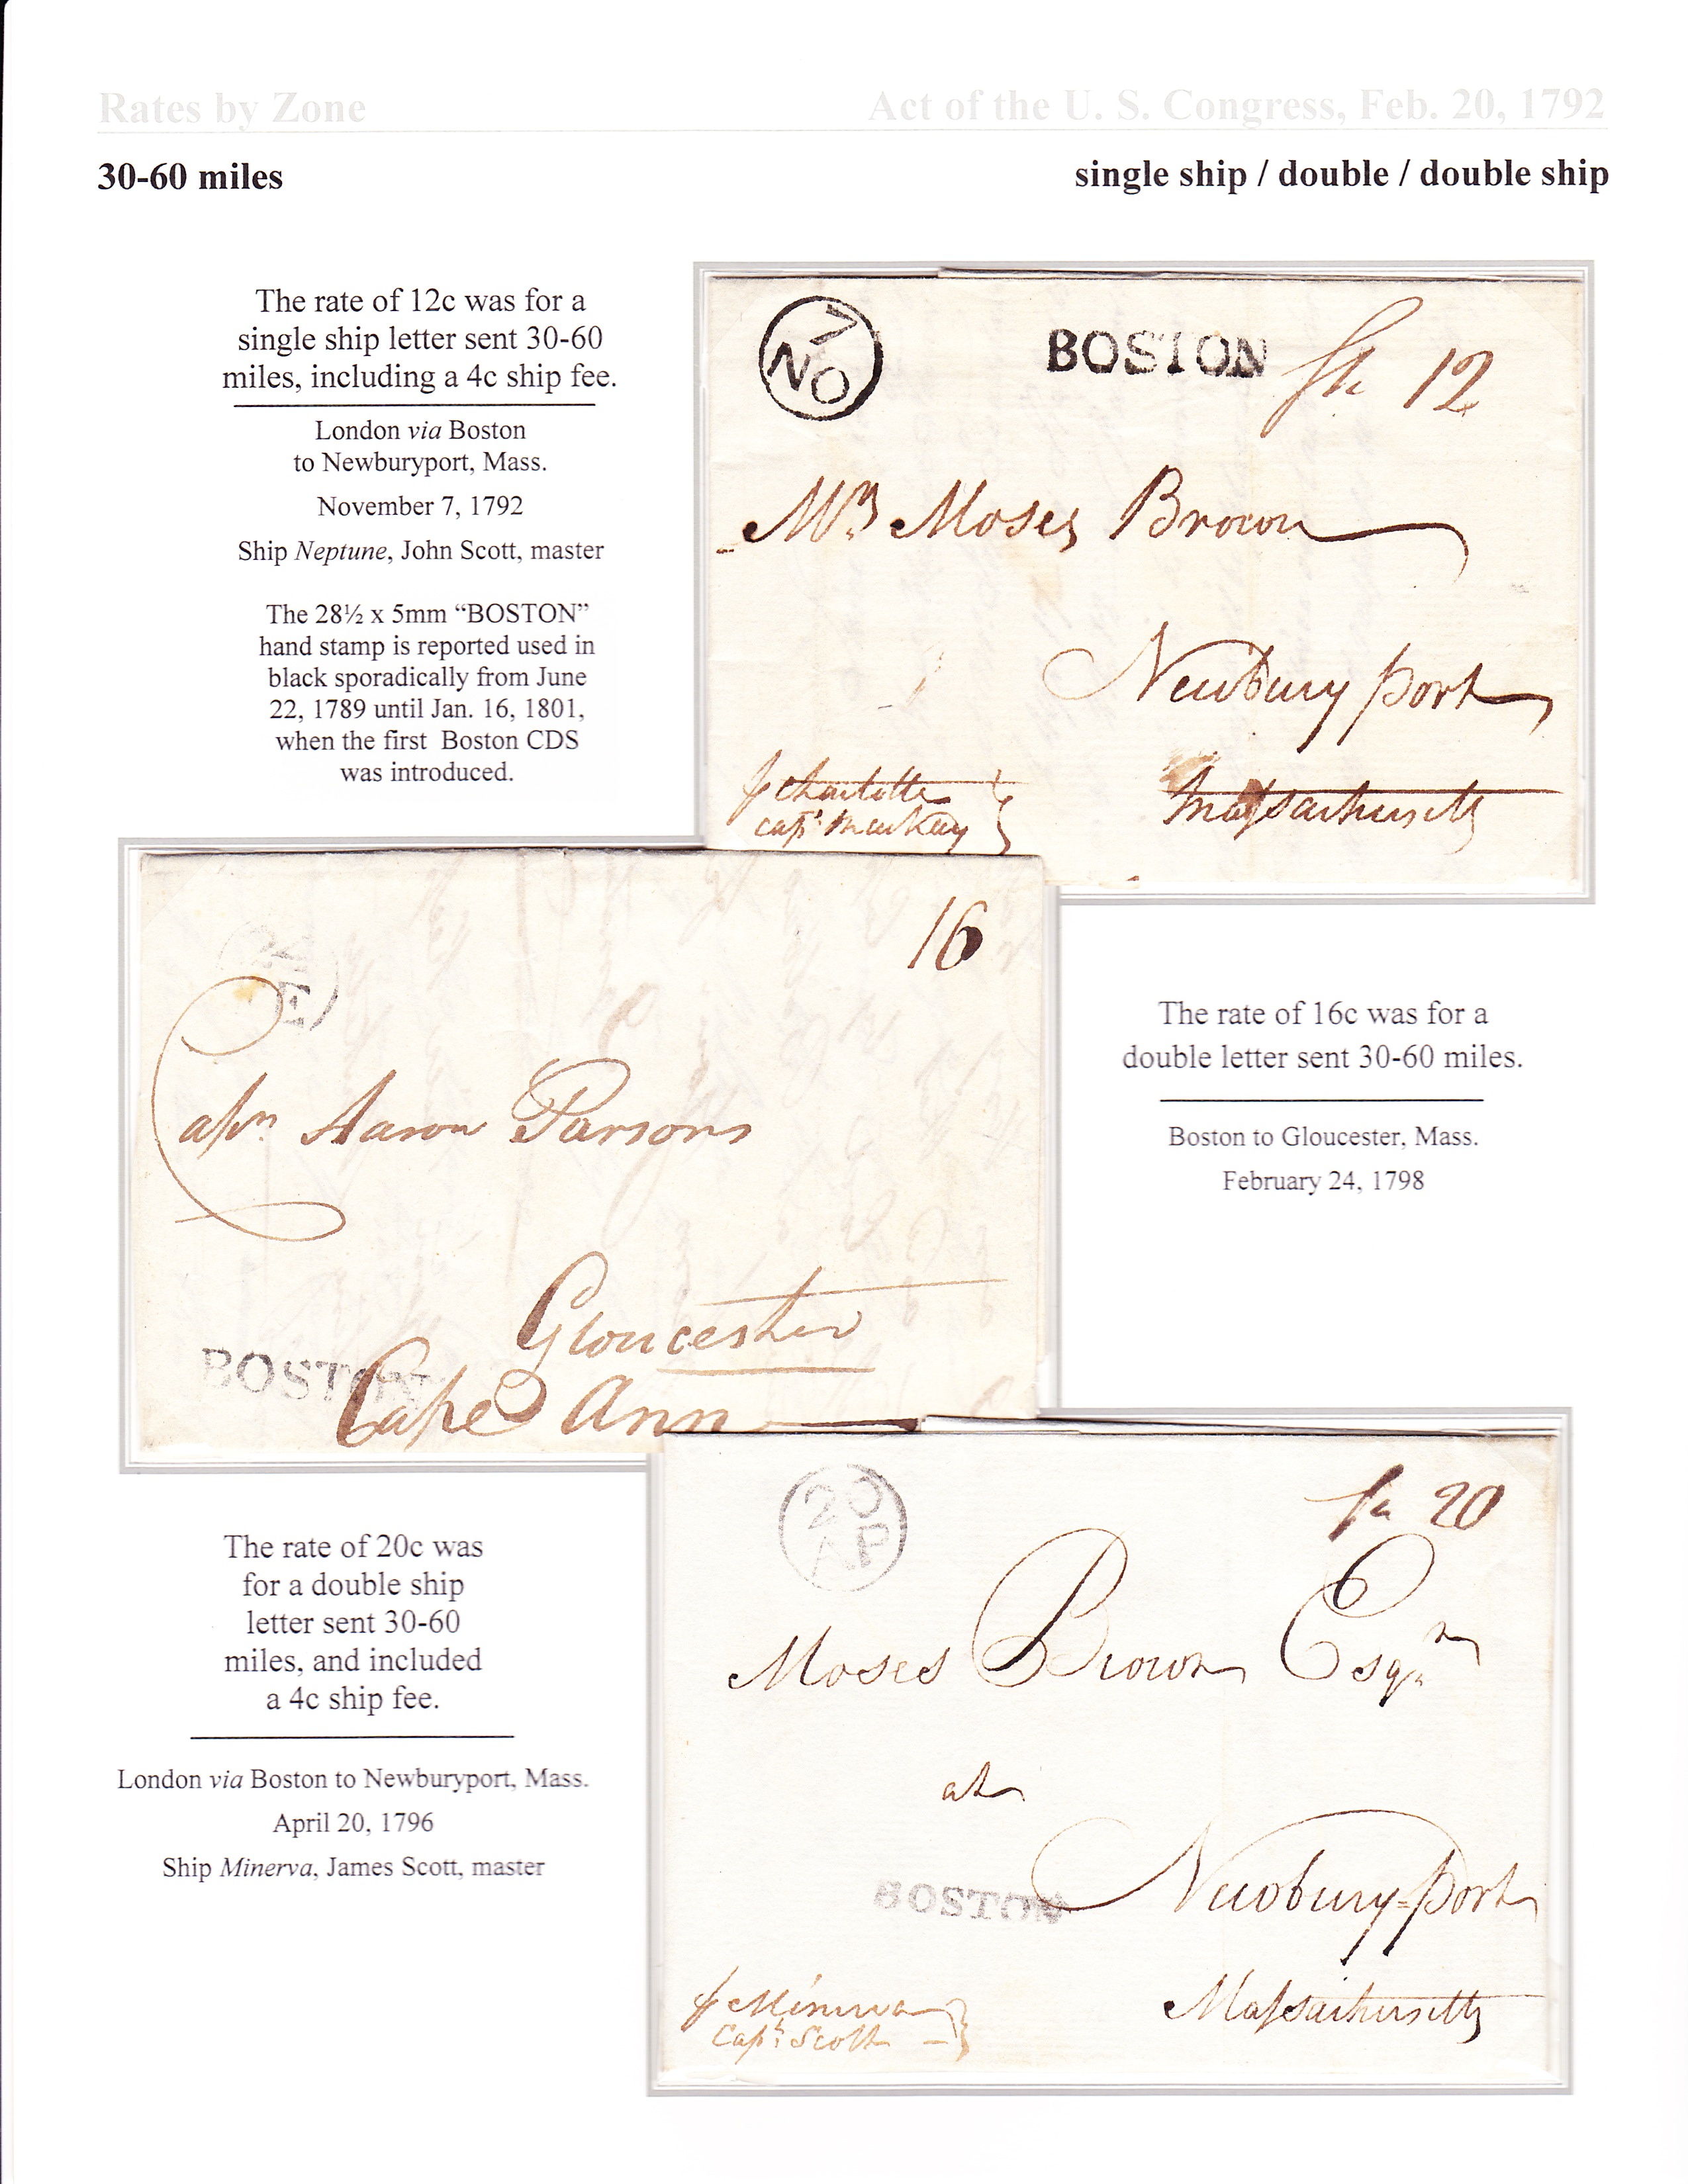 Rates by Zone Act of the U. S. Congress, Feb. 20, 1792
30-60 miles single ship / double / double ship
The rate of 12c was for a
single ship letter sent 30-60
miles, including a 4c ship fee.
London via Boston
to Newburyport, Mass.
November 7, 1792
Ship Neptune, John Scott, master
The 28½ x 5mm “BOSTON”
hand stamp is reported used in
black sporadically from June
22, 1789 until Jan. 16, 1801,
when the first Boston CDS
was introduced.
7
NO
BOSTON Sh 12
Mr Moses Brown
Newbury port
Massachusetts
p Charlotte
Capt Mackay
16
24
E
Capn Aaron Parsons
Gloucester
BOSTON
Cape Ann
The rate of 16c was for a
double letter sent 30-60 miles.
Boston to Gloucester, Mass.
February 24, 1798
The rate of 20c was
for a double ship
letter sent 30-60
miles, and included
a 4c ship fee.
London via Boston to Newburyport, Mass.
April 20, 1796
Ship Minerva, James Scott, master
20
AP
20
Moses Brown Esqr
at
Newbury-port
BOSTON
Massachusetts
p Minerva
Capt Scott